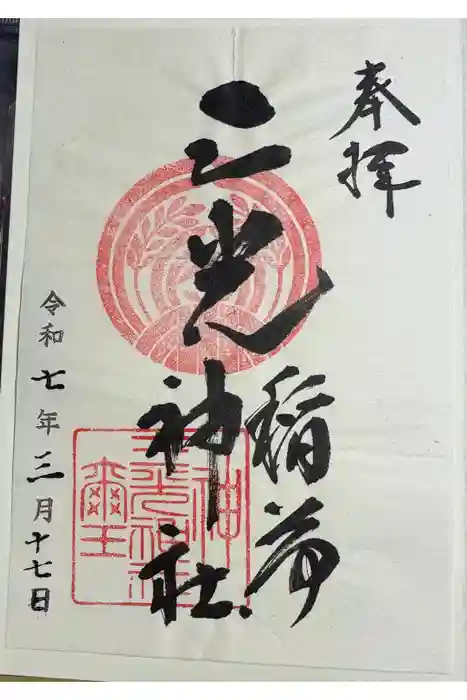 奉拝
三光
稲荷
神社
令和七年三月十七日